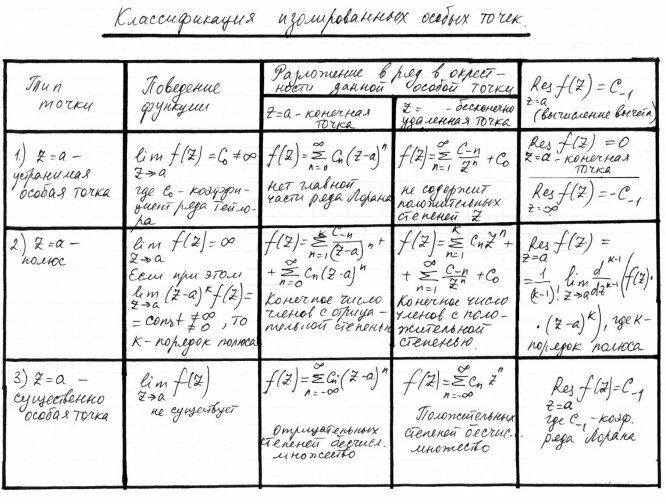 Классификация изолированных особых точек.
Тип
точки
Поведение
функции
Разложение в ряд в окрест-
ности данной особой точки
z=a - конечная
точка
z= - бесконечно
удаленная точка
Res f(z) = C₋₁
z=a
(вычисление вычета)
1) z=a -
устранимая
особая точка
lim f(z) = C₀ ≠ ∞
z→a
где C₀ - коэффи-
циент ряда Тейло-
ра
f(z) = ∑_{n=0}^{∞} Cₙ(z-a)ⁿ
нет главной
части ряда Лорана
f(z) = ∑_{n=1}^{∞} C₋ₙ/zⁿ + C₀
не содержит
положительных
степеней z
Res f(z) = 0
z=a - конечная
точка
Res f(z) = -C₋₁
z=∞
2) z=a -
полюс
lim f(z) = ∞
z→a
Если при этом
lim (z-a)ᵏ f(z) =
z→a
= const ≠ ∞ ≠ 0, то
к - порядок полюса
f(z) = ∑_{n=1}^{k} C₋ₙ/(z-a)ⁿ +
+ ∑_{n=0}^{∞} Cₙ(z-a)ⁿ
Конечное число
членов с отрица-
тельной степенью
f(z) = ∑_{n=1}^{k} Cₙzⁿ +
+ ∑_{n=1}^{∞} C₋ₙ/zⁿ + C₀
Конечное число
членов с поло-
жительной
степенью.
Res f(z) =
z=a
= 1/(k-1)! lim_{z→a} d^{k-1}/dz^{k-1} (f(z)·
·(z-a)ᵏ), где к -
порядок полюса
3) z=a -
существенно
особая точка
lim f(z)
z→a
не существует
f(z) = ∑_{n=-∞}^{∞} Cₙ(z-a)ⁿ
Отрицательных
степеней бесчисл.
множество
f(z) = ∑_{n=-∞}^{∞} Cₙ zⁿ
Положительных
степеней бесчисл.
множество
Res f(z) = C₋₁
z=a
где C₋₁ - коэф.
ряда Лорана